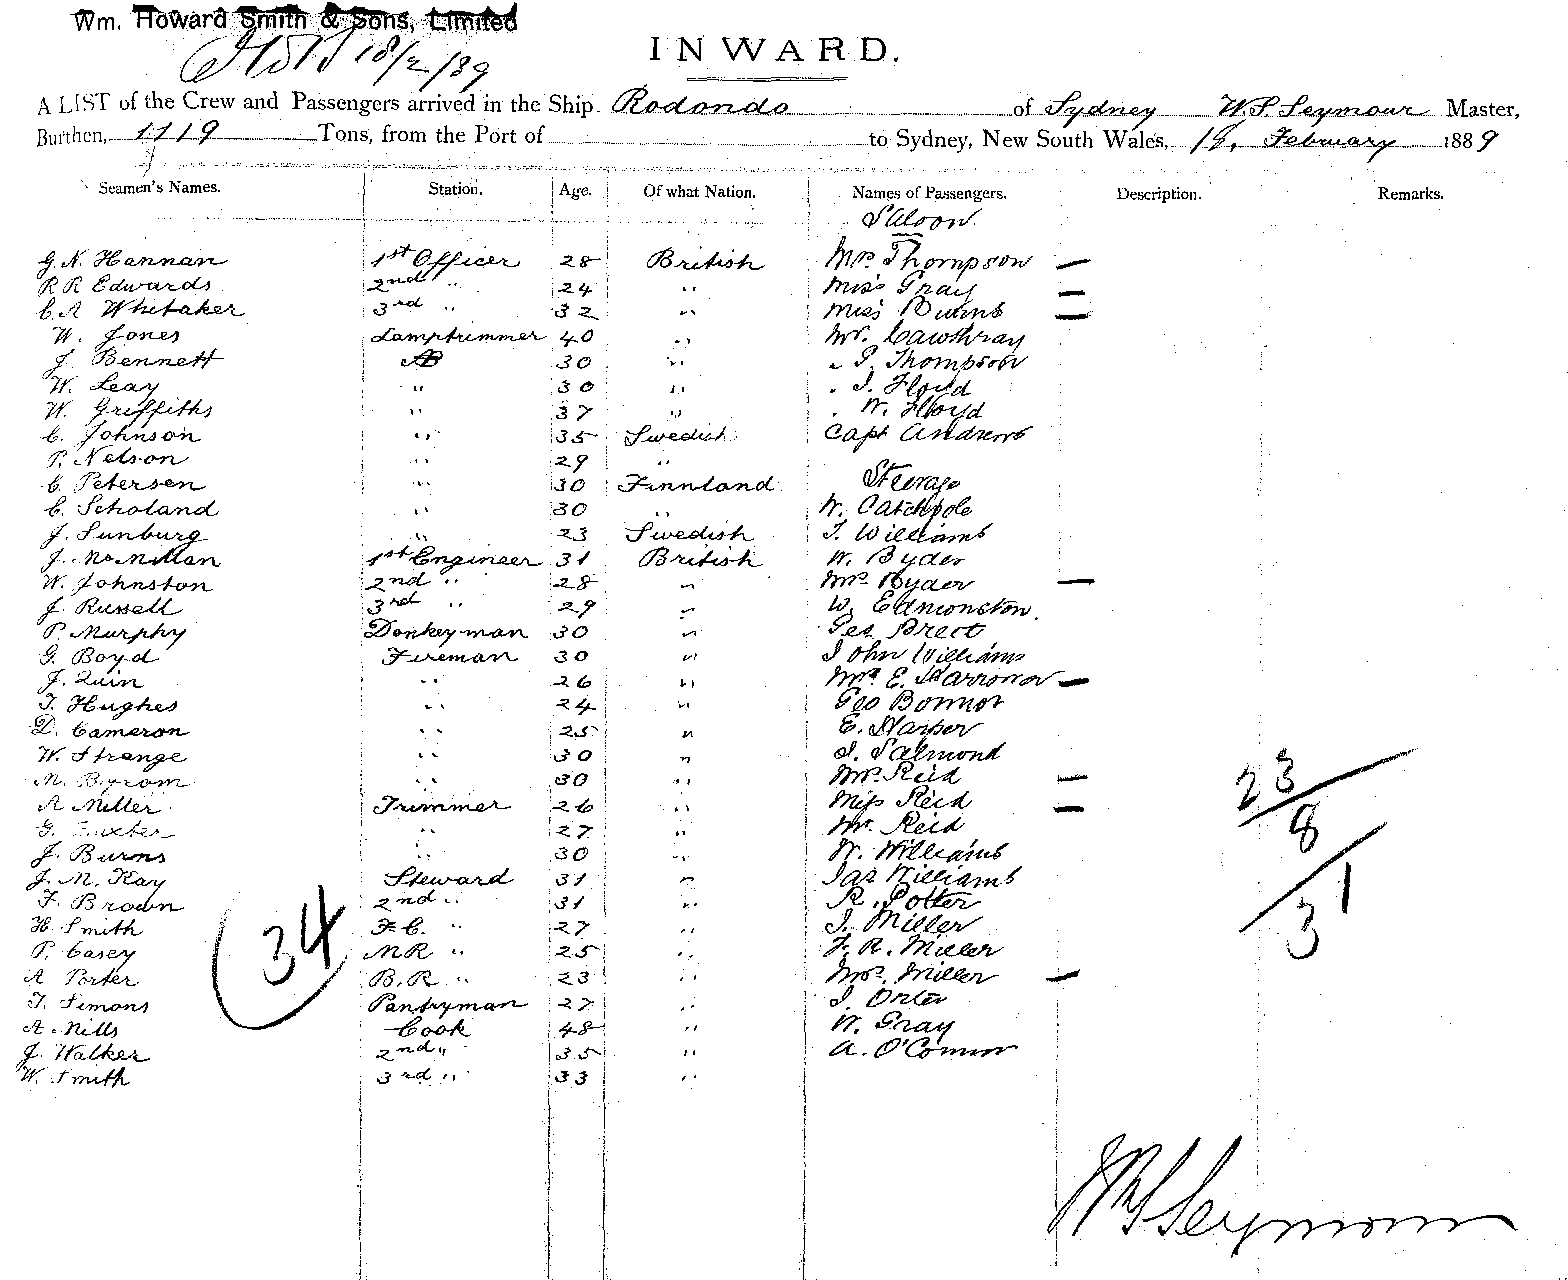 Wm. Howard Smith & Sons, Limited
18/2/89
INWARD.
A LIST of the Crew and Passengers arrived in the Ship Rodondo of Sydney W.S. Seymour Master,
Burthen, 1119 Tons, from the Port of to Sydney, New South Wales, 18, February 1889
Seamen's Names. Station. Age. Of what Nation. Names of Passengers. Description. Remarks.
Saloon
G. N. Hannan 1st Officer 28 British Mrs. Thompson —
R R Edwards 2nd " 24 " Miss Gray —
C. A Whitaker 3rd " 32 " Miss Burns —
W. Jones Lamptrimmer 40 " Mr. Cawthray
J. Bennett AB 30 " " J. Thompson
W. Leay " 30 " " J. Floyd
W. Griffiths " 37 " " W. Floyd
C. Johnson " 35 Swedish Capt Andrews
P. Nelson " 29 "
C. Petersen " 30 Finnland Steerage
C. Scholand " 30 " W. Catchpole
J. Sunburg " 23 Swedish T. Williams
J. McMillan 1st Engineer 31 British W. Ryder
W. Johnston 2nd " 28 " Mrs Ryder —
J. Russell 3rd " 29 " W. Edmonston
P. Murphy Donkeyman 30 " Geo. Brect
G. Boyd Fireman 30 " John Williams
J. Quin " 26 " Mrs E. —
T. Hughes " 24 " Geo Bonnor
D. Cameron " 25 " E. Harper
W. Strange " 30 " J. Salmond
M. Byrom " 30 " Mrs. Reid —
A Miller Trimmer 26 " Miss Reid —
G. " 27 " Mr. Reid
J. Burns " 30 " W. Williams
J. M. Kay Steward 31 " Jas Williams
F. Brown 2nd " 31 " R. Potter
H. Smith F.C. " 27 " J. Miller
P. Casey MR " 25 " F. R. Miller
A Porter B.R " 23 " Mrs. Miller —
T. Simons Pantryman 27 " J. Orter
A. Mills Cook 48 " W. Gray
J. Walker 2nd " 35 " A. O'Connor
W. Smith 3rd " 33 "
34
23
8
31
W S Seymour